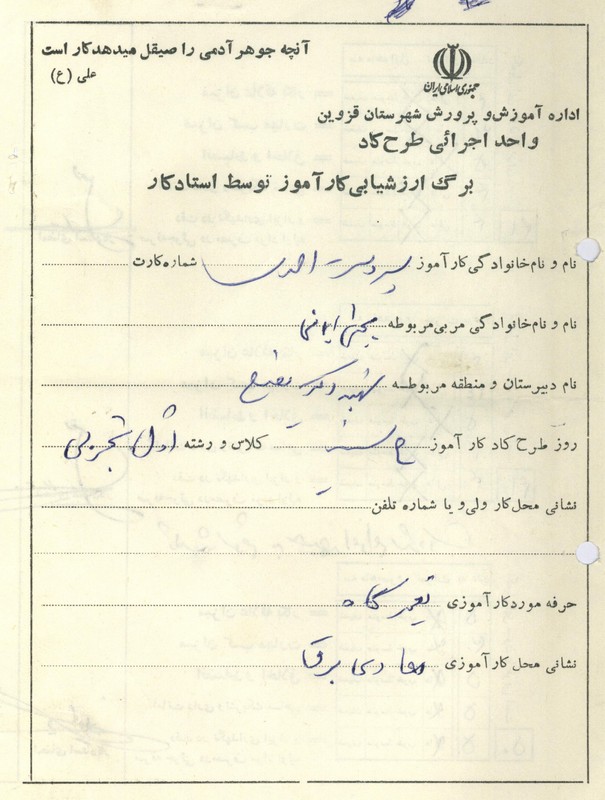 آنچه جوهر آدمی را صیقل میدهد کار است
علی (ع)
جمهوری اسلامی ایران
اداره آموزش و پرورش شهرستان قزوین
واحد اجرائی طرح کاد
برگ ارزشیابی کارآموز توسط استادکار
نام و نام خانوادگی کارآموز احمدی شماره کارت
نام و نام خانوادگی مربی مربوطه
نام دبیرستان و منطقه مربوطه شهید
روز طرح کاد کار آموز کلاس و رشته اول تجربی
نشانی محل کار ولی و یا شماره تلفن
حرفه مورد کارآموزی تعمیرگاه
نشانی محل کارآموزی